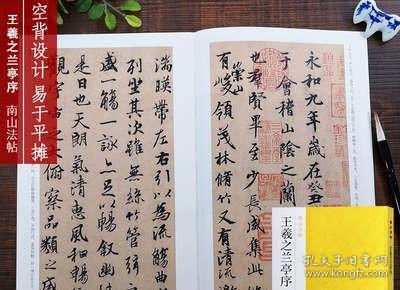 空背设计 易于平摊
王羲之兰亭序 南山法帖
永和九年歲在癸丑
于會稽山陰之蘭
也羣賢畢至少長咸集此
崇山
有峻領茂林脩竹又有清流
湍暎帶左右引以為流觴曲
列坐其次雖無絲竹管弦
盛一觴一詠亦足以暢叙幽
是日也天朗氣清惠風和暢
觀宇宙之大俯察品類之盛
王羲之兰亭序
孔夫子旧书网